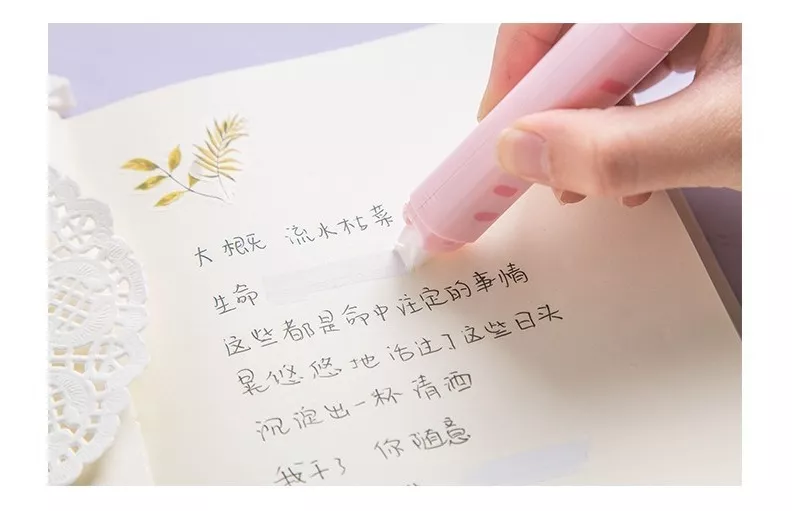 大概 流水枯菜
生命
这些都是命中注定的事情
晃悠悠地活过了这些日头
沉淀出一杯清酒
我干了 你随意